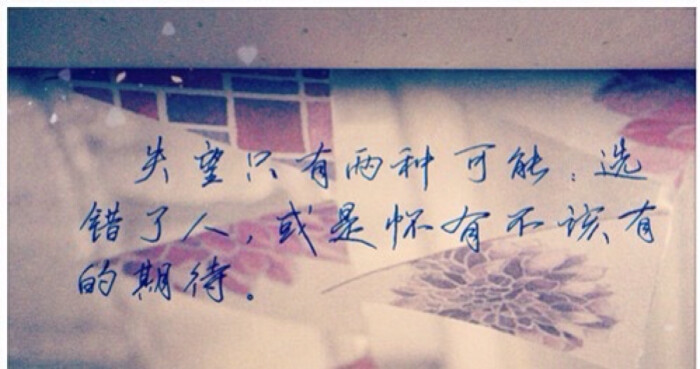 失望只有两种可能:选
错了人,或是怀有不该有
的期待。